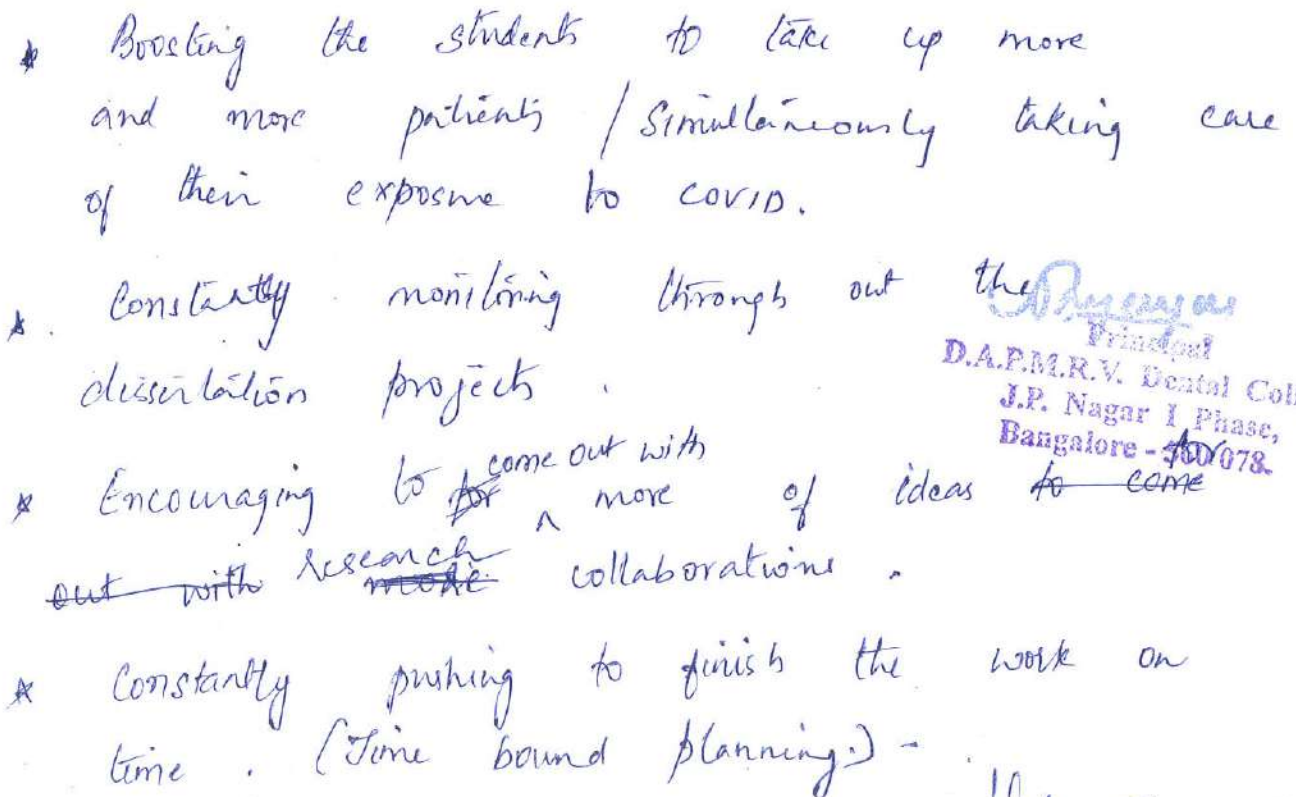 * Boosting the students to take up more
and more patients / simultaneously taking care
of their exposure to COVID.
* Constantly monitoring through out the
dissertation projects.
Principal
D.A.P.M.R.V. Dental Coll
J.P. Nagar I Phase,
Bangalore - 560 078.
* Encouraging to for come out with ^ more of ideas to come for
out with research more collaborations.
* Constantly pushing to finish the work on
time. (Time bound planning.) -